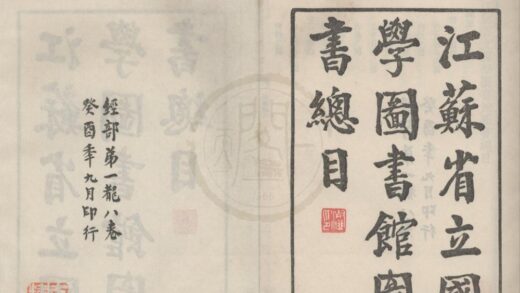 江蘇省立國
學圖書館圖
書總目
經部第一八卷
癸酉年九月印行